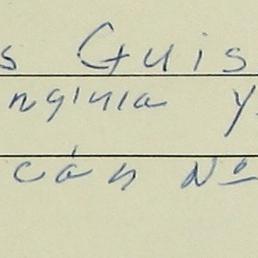 s Guis
nginia Y.
ción Nº